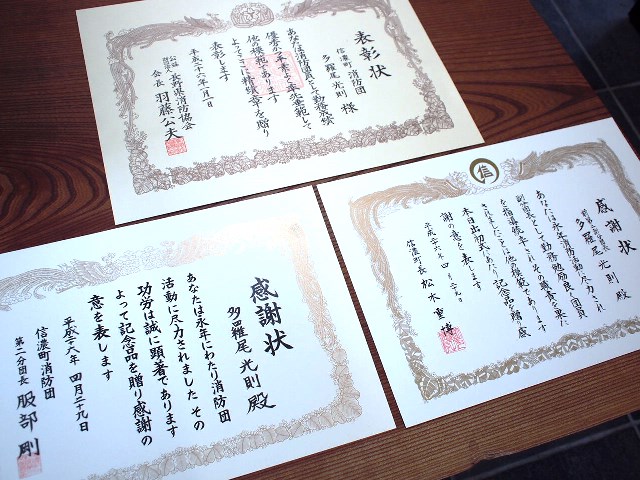 表彰状
信濃町消防団
多羅尾光則 様
あなたは消防団員として勤務成績
優秀かつ卒先よく卒先垂範して
他の模範であります
よってここに精績章を贈り
表彰します
平成二十六年一月一日
長野県消防協会
会長 羽藤公夫
信
感謝状
多羅尾光則 殿
あなたは永年消防活動に尽力され
副分団長として勤務勉励良く団員
を指導統率しその職責を果た
されましたことは他の模範であります
本日出初式にあたり記念品を贈り感
謝の意を表します
信濃町長 松木重博
感謝状
多羅尾光則 殿
あなたは永年にわたり消防団
活動に尽力されました その
功労は誠に顕著であります
よって記念品を贈り感謝の
意を表します
平成二十六年 四月二十九日
信濃町消防団
第二分団長 服部 剛